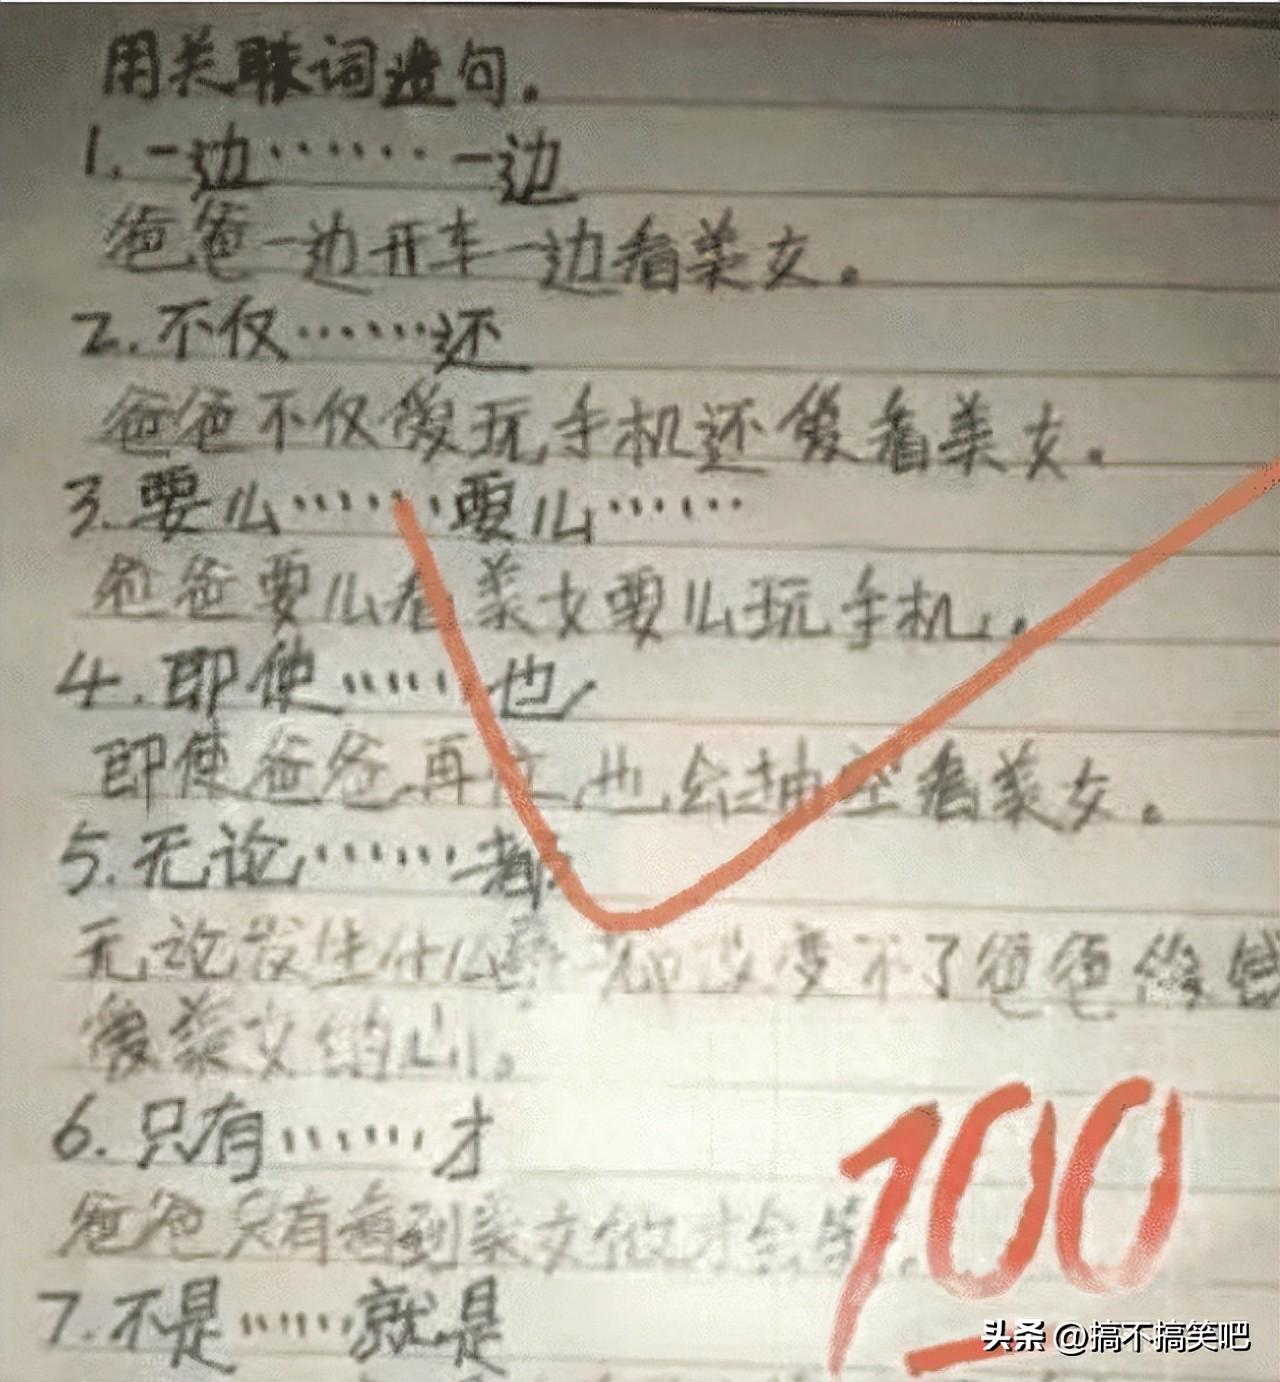 用关联词造句。
1.一边……一边
爸爸一边开车一边看美女。
2.不仅……还
爸爸不仅爱玩手机还爱看美女。
3.要么……要么……
爸爸要么看美女要么玩手机。
4.即使……也
即使爸爸再忙也会抽空看美女。
5.无论……都
无论发生什么 都改变不了爸爸
爱美女的
6.只有……才
爸爸只有看到美女 才会笑
7.不是……就是
100
头条 @搞不搞笑吧